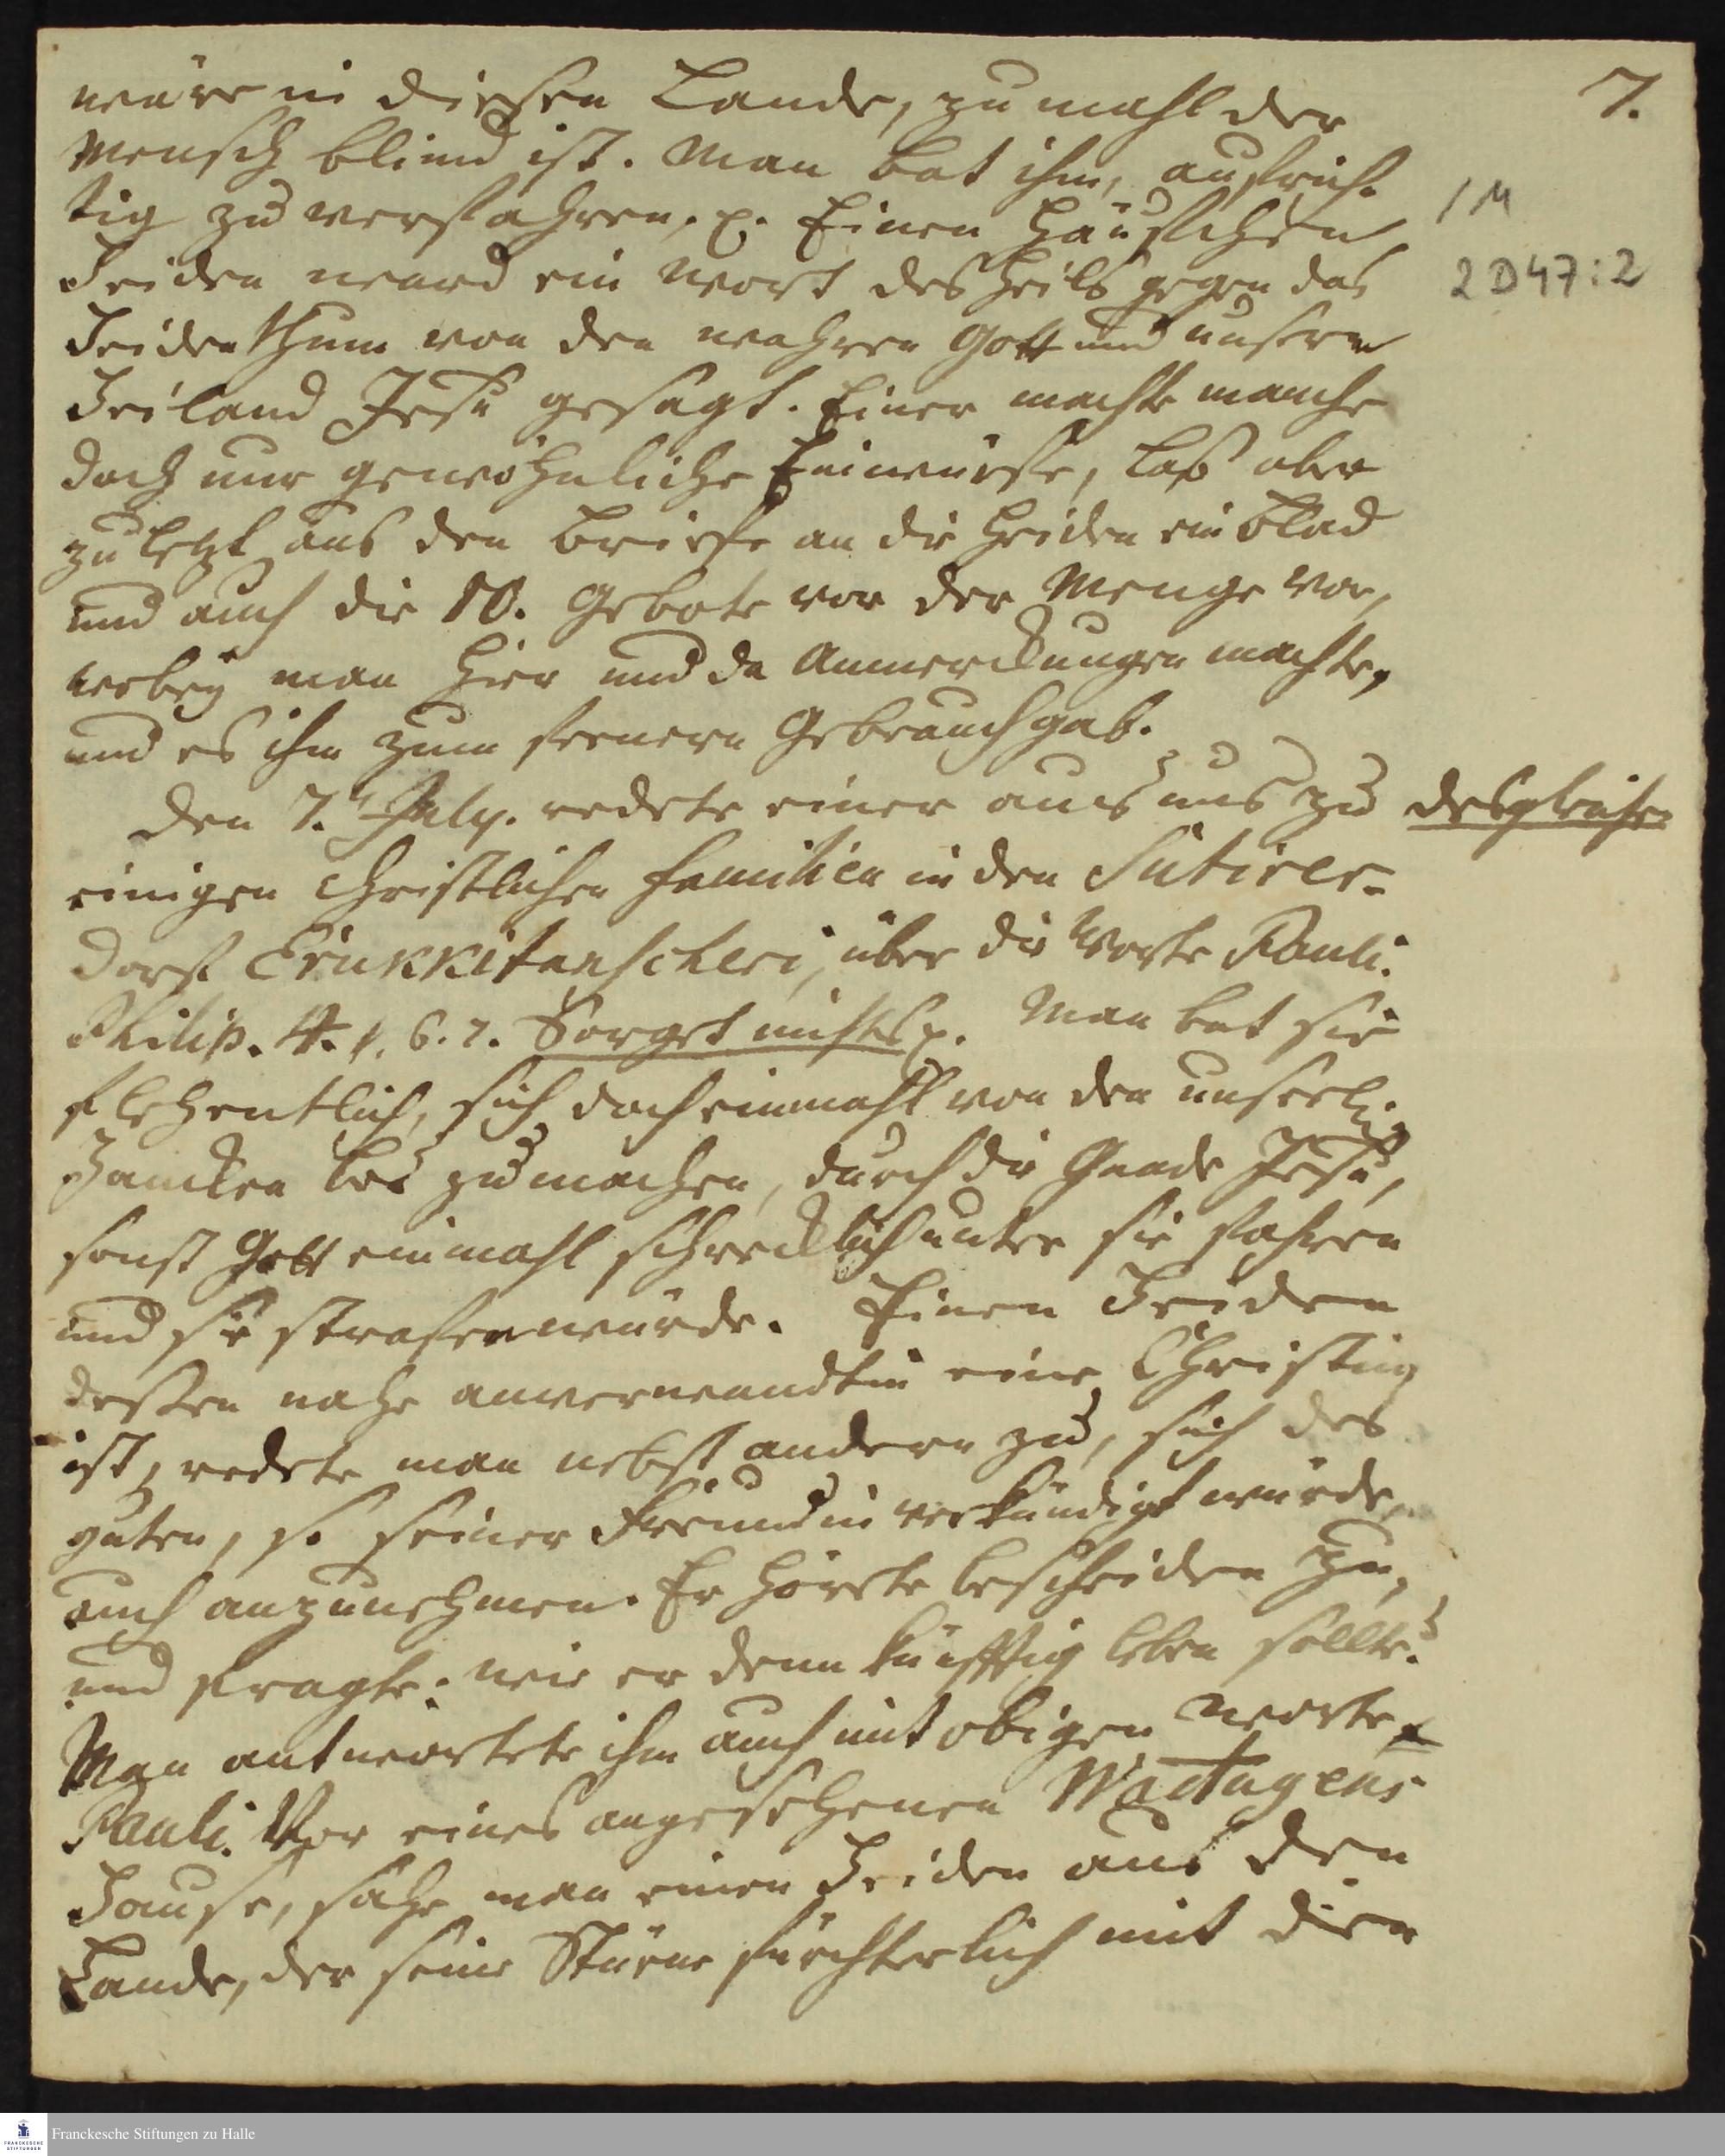 7.
wäre in diesen Lande, zu mahl der
Mensch blind ist. Man bat ihm, aufrich-
tig zu verfahren. p. Einen Häufchen
1 M
Heiden ward ein Wort des Heils gegen das
2 D 47:2
Heidenthum von den wahren Gott und unsern
Heiland Jesu gesagt. Einer machte manche
doch nur gewöhnliche Einwürfe, laß aber
zu letzt aus den Briefe an die Heiden ein Blad
und auch die 10. Gebote vor der Menge vor,
wobey man hier und da Anmerckungen machte,
und es ihm zum fernern Gebrauch gab.
Den 7.t July. redete einer aus uns zu
desgleich.
einigen Christlichen Familien in den Sutirer-
dorf Erukkitanscheri, über die Worte Pauli.
Philip. 4. v. 6. 7. Sorget nichts p. Man bat sie
flehentlich, sich doch einmahl von den unseelig
Zancken los zu machen, durch die Gnade Jesu,
sonst Gott einmahl schrecklich unter sie fahren
und sie strafen würde. Einen Heiden
deßen nahe anverwandtin eine Christin
ist, redete man nebst andern zu, sich des
guten, so seiner Freundin verkündigt würde,
auch anzunehmen. Er hörete bescheiden zu,
und fragte: wie er denn künfftig leben sollte?
Man antwortete ihm auch mit obigen Worte
Pauli. Vor eines angesehenen Wartugens
Hause, sahe man einen Heiden aus den
Lande, der seine Stirne fürchterlich mit den
Franckesche Stiftungen zu Halle